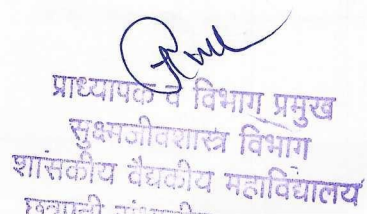 प्राध्यापक व विभाग प्रमुख
सुक्ष्मजीवशास्त्र विभाग
शासकीय वैद्यकीय महाविद्यालय
छत्रपती